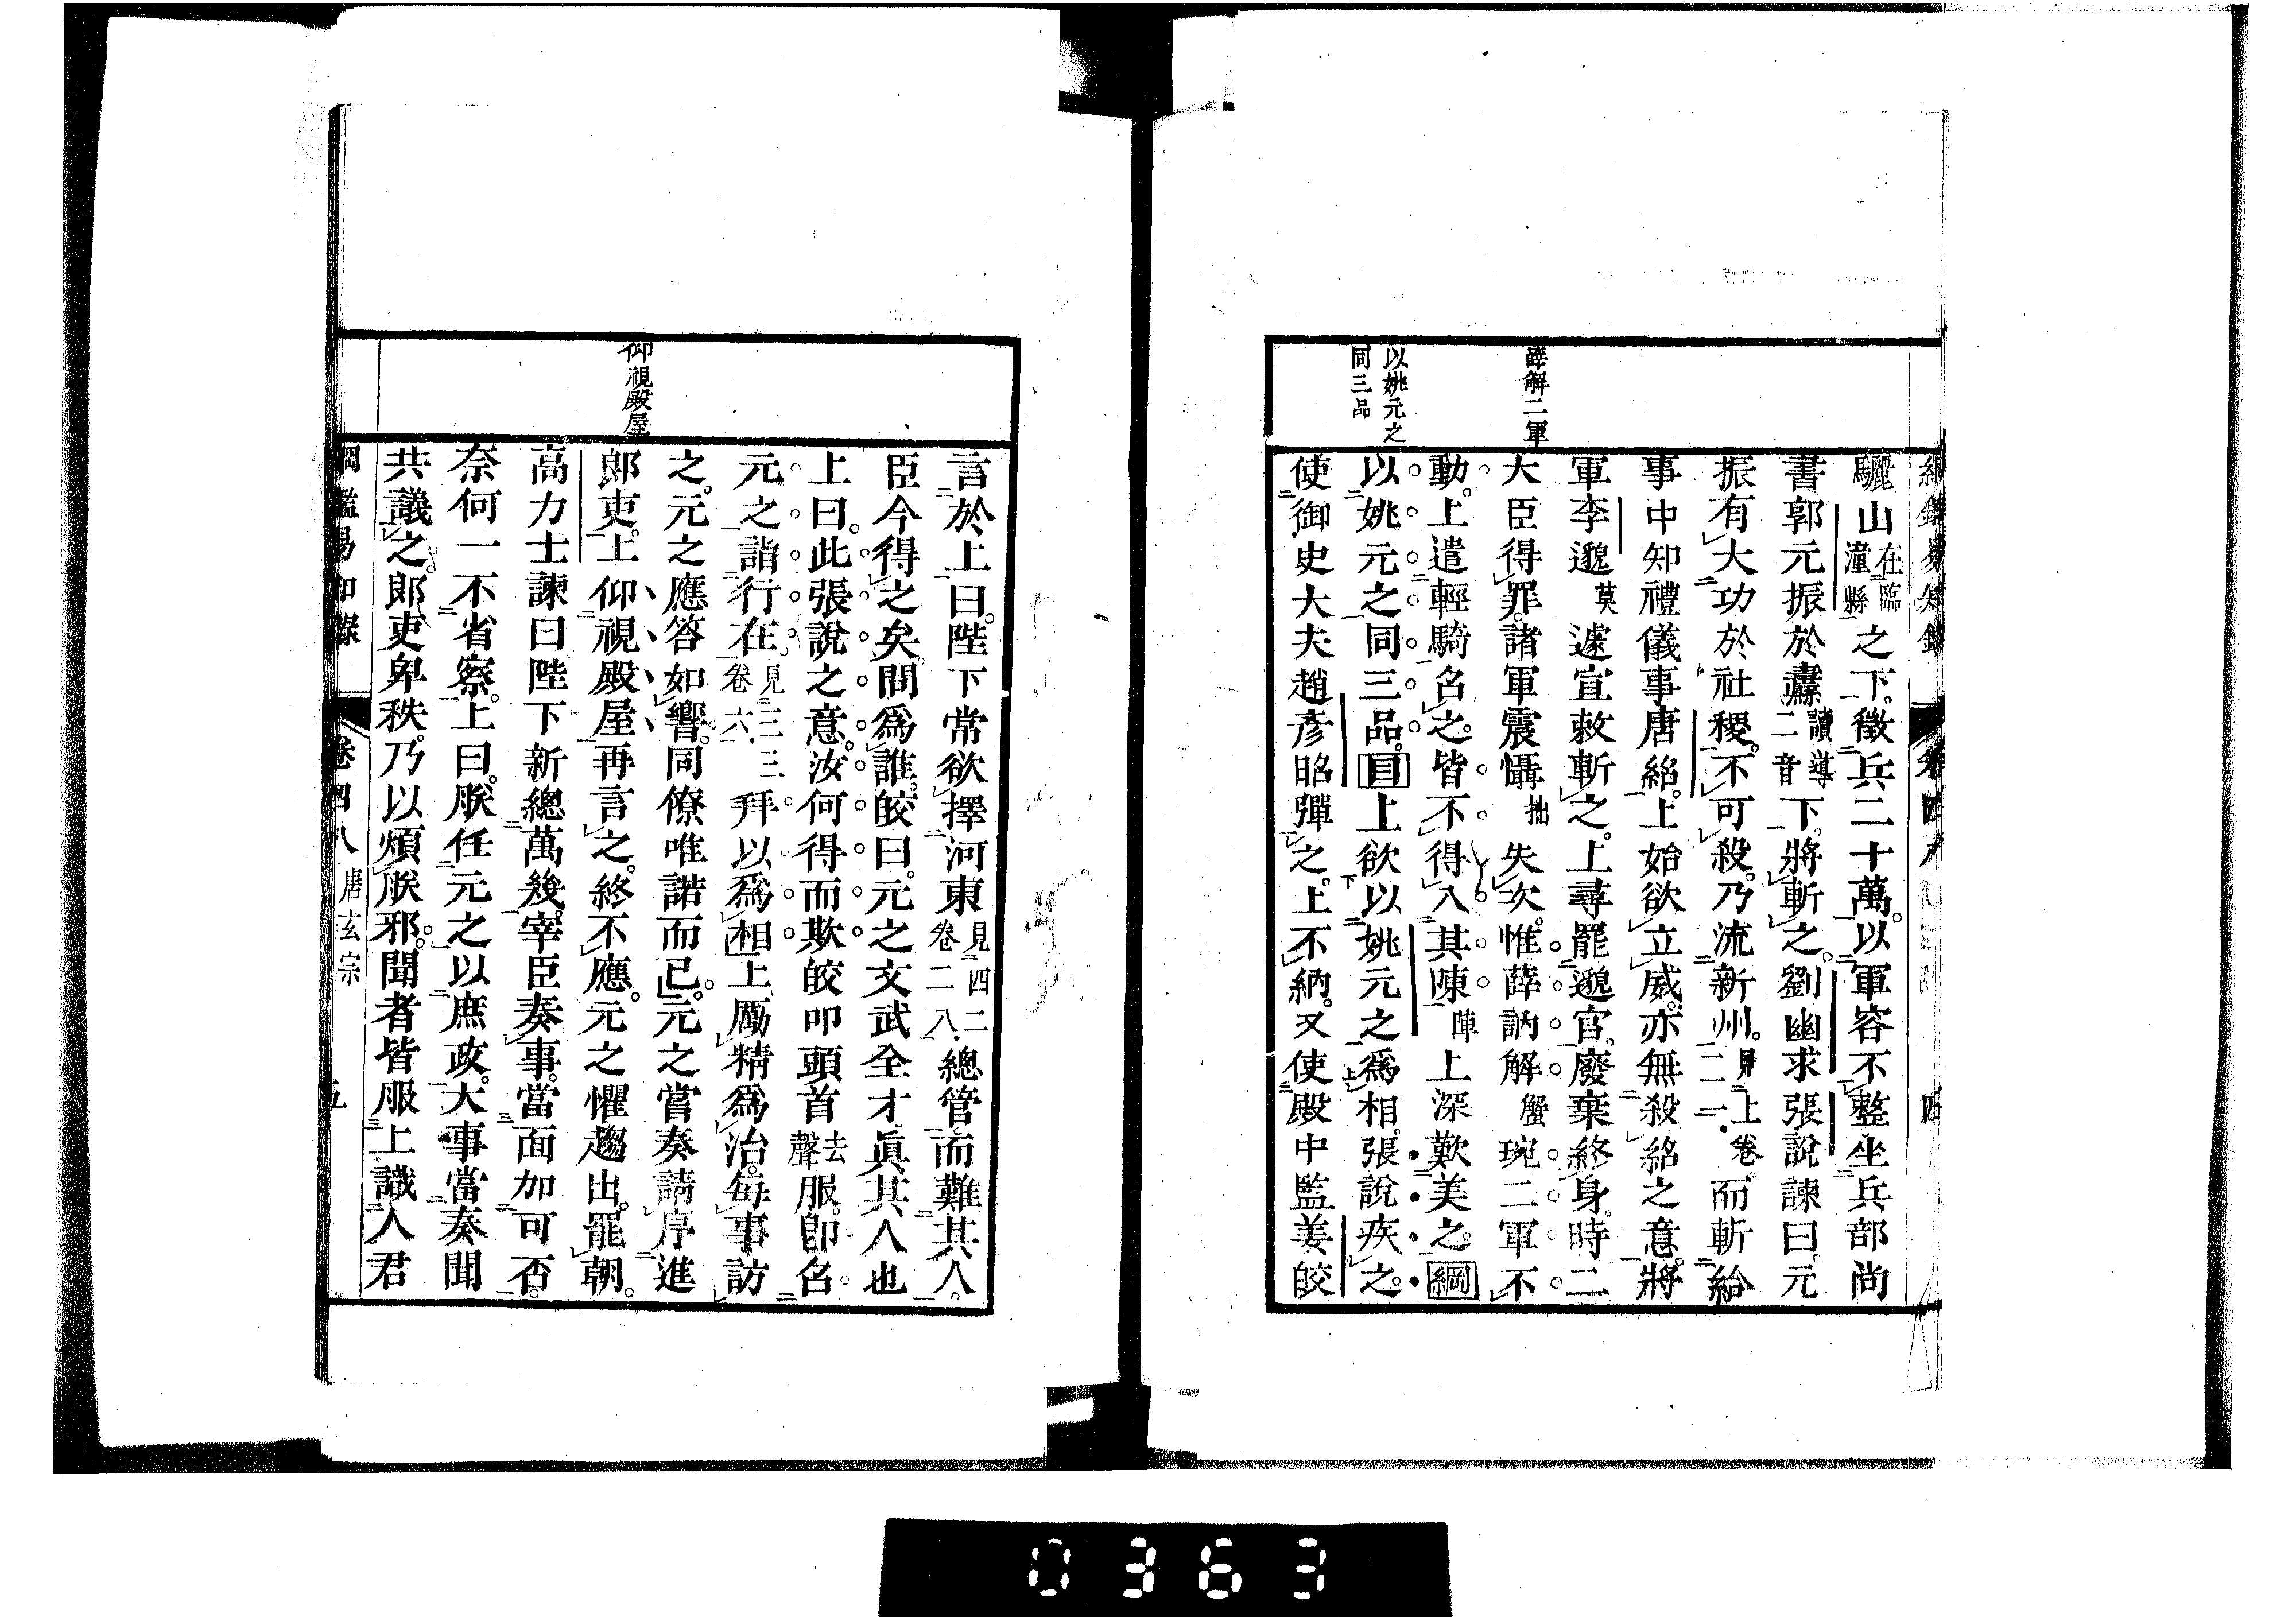 薛解二軍
以姚元之
同三品
驪山在臨潼縣之下。徵兵二十萬。以軍容不整坐兵部尚
書郭元振於纛讀導二音下。將斬之。劉幽求張說諫曰。元
振有大功於社稷。不可殺。乃流新州。見上卷二一而斬給
事中知禮儀事唐紹。上始欲立威。亦無殺紹之意。將
軍李邈莫遽宣敕斬之。上尋罷邈官。廢棄終身。時二
大臣得罪。諸軍震懾拙失次。惟薛訥解蟹琬二軍不
動。上遣輕騎召之。皆不得入其陳陣上深歎美之。綱
以姚元之同三品。目上欲以姚元之爲相。張說疾之。
使御史大夫趙彥昭彈之。上不納。又使殿中監姜皎
仰視殿屋
言於上曰。陛下常欲擇河東見四二卷二八總管而難其人。
臣今得之矣。問爲誰。皎曰。元之文武全才眞其人也
上曰。此張說之意。汝何得而欺。皎叩頭首去聲服。卽召
元之詣行在。見三三卷六拜以爲相。上勵精爲治。每事訪
之。元之應答如響。同僚唯諾而已。元之嘗奏請序進
郎吏。上仰視殿屋。再言之。終不應。元之懼趨出。罷朝。
高力士諫曰陛下新總萬幾。宰臣奏事。當面加可否。
奈何一不省察。上曰。朕任元之以庶政。大事當奏聞
共議之。郎吏卑秩。乃以煩朕邪。聞者皆服上識人君
綱鑑易知錄 卷四八 唐玄宗 五